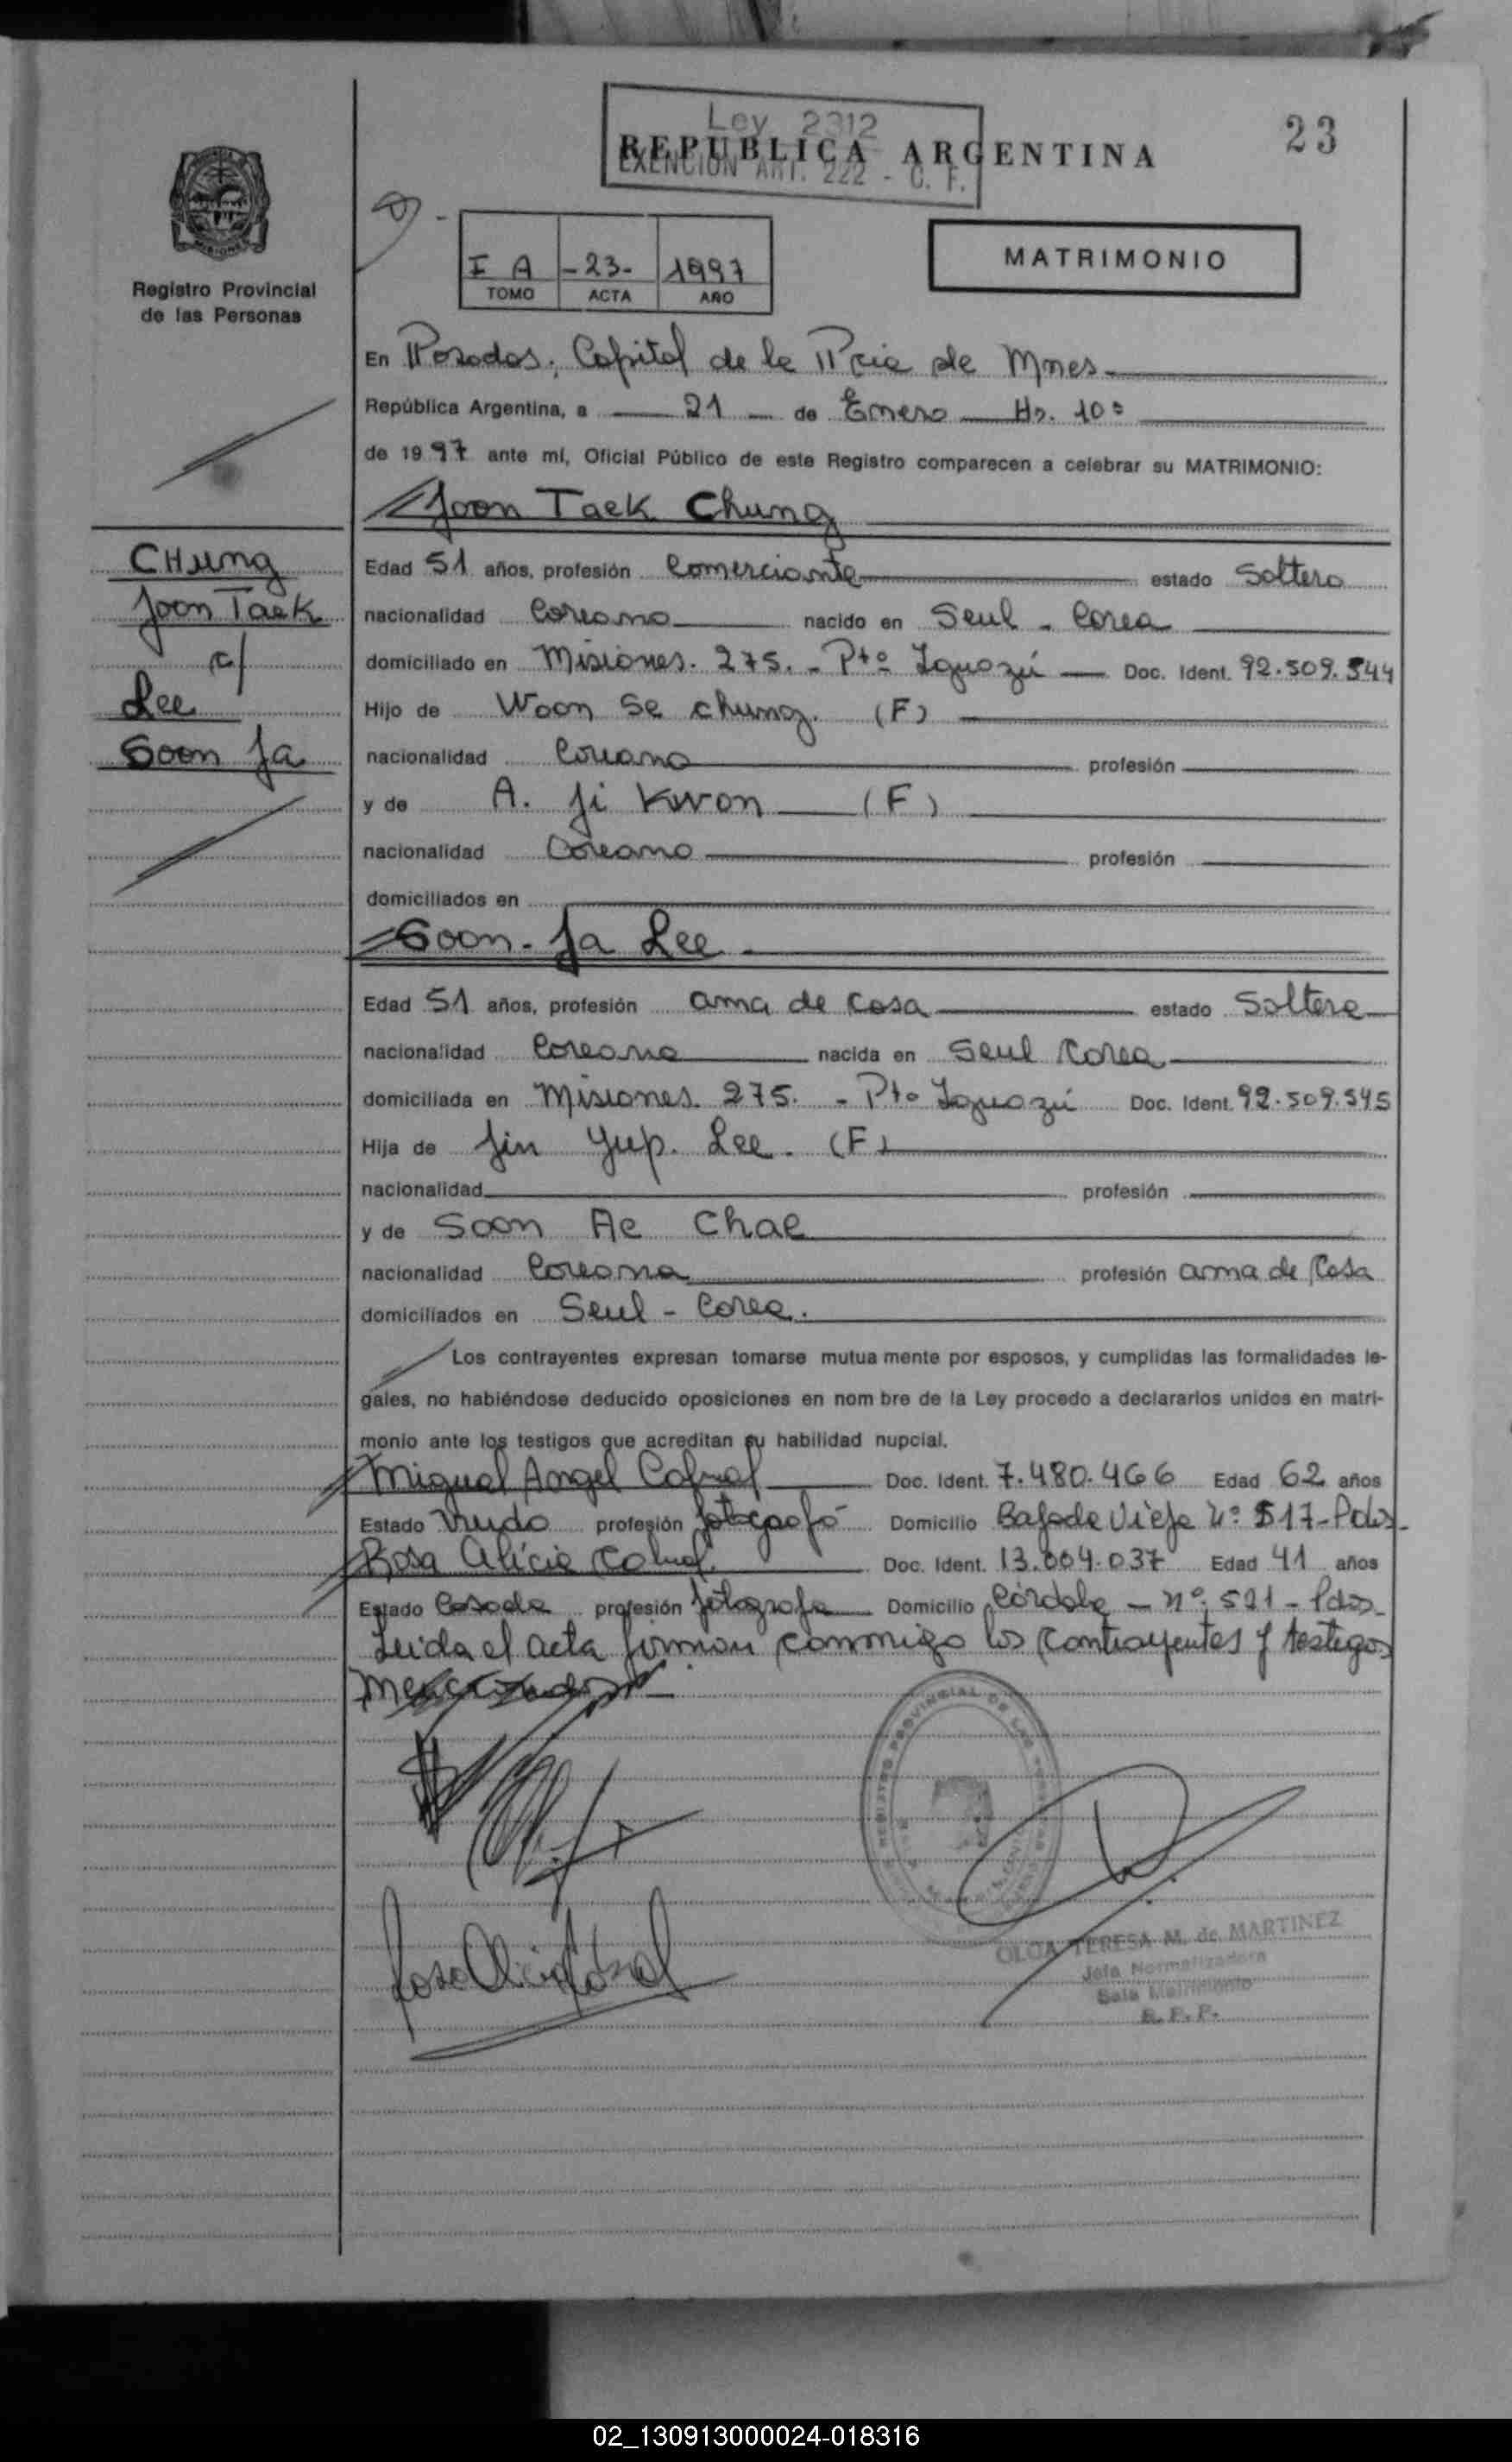 23
Ley 2312
EXENCION ART. 222 - C. F.
REPUBLICA ARGENTINA
MISIONES
Registro Provincial
de las Personas
I A -23- 1997
TOMO ACTA AÑO
MATRIMONIO
En Posadas, Capital de la Pcia de Mnes
República Argentina, a 21 de Enero Hs. 10
de 1997 ante mí, Oficial Público de este Registro comparecen a celebrar su MATRIMONIO:
CHung
Joon Taek
c/
Lee
Soon Ja
Joon Taek Chung
Edad 51 años, profesión Comerciante estado Soltero
nacionalidad Coreano nacido en Seul - Corea
domiciliado en Misiones. 275. - Pto Iguazú Doc. Ident. 92.509.544
Hijo de Woon Se Chung. (F)
nacionalidad Coreano profesión
y de A. Ji Kwon (F)
nacionalidad Coreano profesión
domiciliados en
Soon - Ja Lee
Edad 51 años, profesión ama de casa estado Soltera
nacionalidad Coreana nacida en Seul Corea
domiciliada en Misiones 275. - Pto Iguazú Doc. Ident. 92.509.545
Hija de Jin Yup. Lee. (F)
nacionalidad profesión
y de Soon Ae Chae
nacionalidad Coreana profesión ama de Casa
domiciliados en Seul - Corea.
Los contrayentes expresan tomarse mutua mente por esposos, y cumplidas las formalidades le-
gales, no habiéndose deducido oposiciones en nom bre de la Ley procedo a declararlos unidos en matri-
monio ante los testigos que acreditan su habilidad nupcial.
Miguel Angel Cabral Doc. Ident. 7.480.466 Edad 62 años
Estado Viudo profesión fotógrafo Domicilio Bajada Vieja Nº 517 - Pdas
Rosa Alicia Cabral Doc. Ident. 13.004.037 Edad 41 años
Estado Casada profesión fotografa Domicilio Córdoba - nº 521 - Pdas
Leida el acta firman conmigo los contrayentes y testigos
mencionados
Rosa Alicia Cabral
REGISTRO PROVINCIAL DE LAS PERSONAS
OLGA TERESA M. de MARTINEZ
Jefa Normalizadora
Sala Matrimonio
R. P. P.
02_130913000024-018316